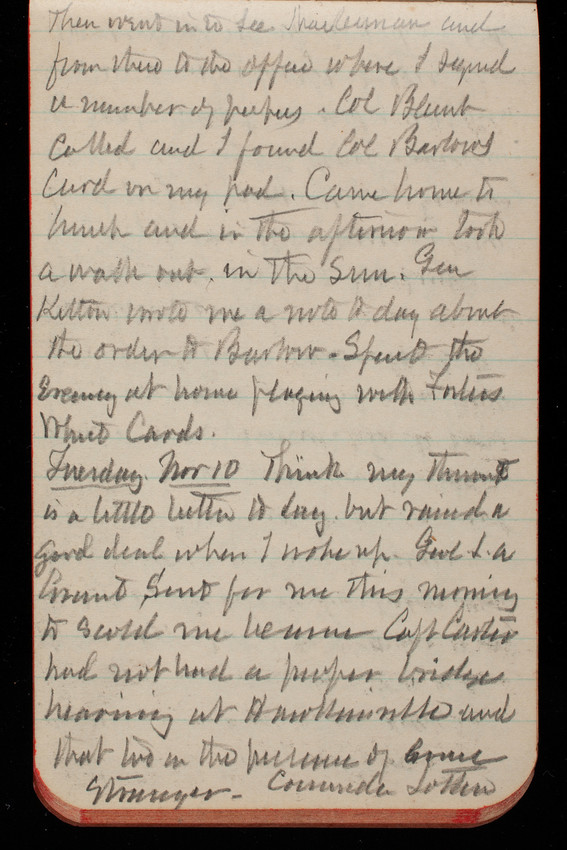 Then went in to see and
from there to the office where I signed
a number of papers. Col Blunt
called and I found Col Barlows
Card on my pad. Came home to
lunch and in the afternoon took
a walk out in the Sun. Gen
Kelton wrote me a note to day about
the order to Barlow. Spent the
Evening at home playing with Fosters
Whist Cards.
Tuesday Nov 10 Think my throat
is a little better to day but raised a
good deal when I woke up. Genl
Grant Sent for me this morning
to scold me because Capt Carter
had not had a proper bridge
hearing at Hawkinsville and
that too in the presence of some
Stranger -